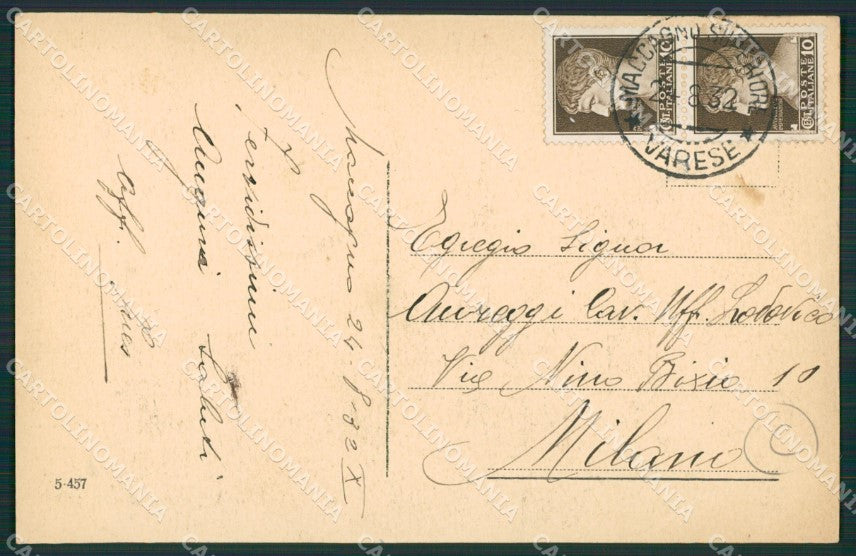 Maccagno 24-8-32 X
Fervidissimi
Auguri Saluti
Aff.
10
POSTE
ITALIANE
10
POSTE
ITALIANE
MACCAGNO
24.8.32
VARESE
Egregio Signor
Aureggi Cav. Uff. Lodovico
Via Nino Bixio 10
Milano
5-457
CARTOLINOMANIA